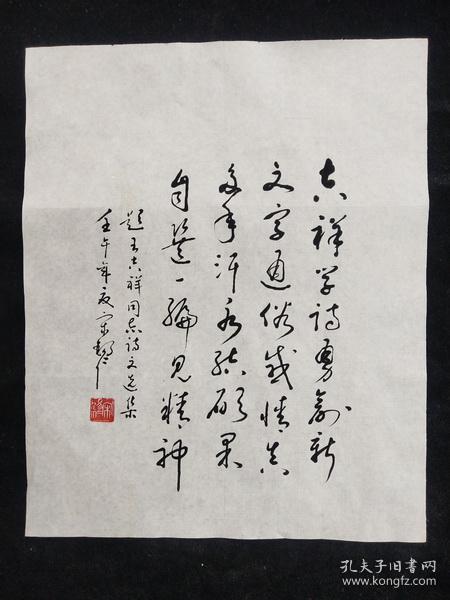 吉祥学诗勇创新
文字通俗感情真
多年汗水结硕果
自选一编见精神
题王吉祥同志诗文选集
壬午年夏 宋
孔夫子旧书网
www.kongfz.com